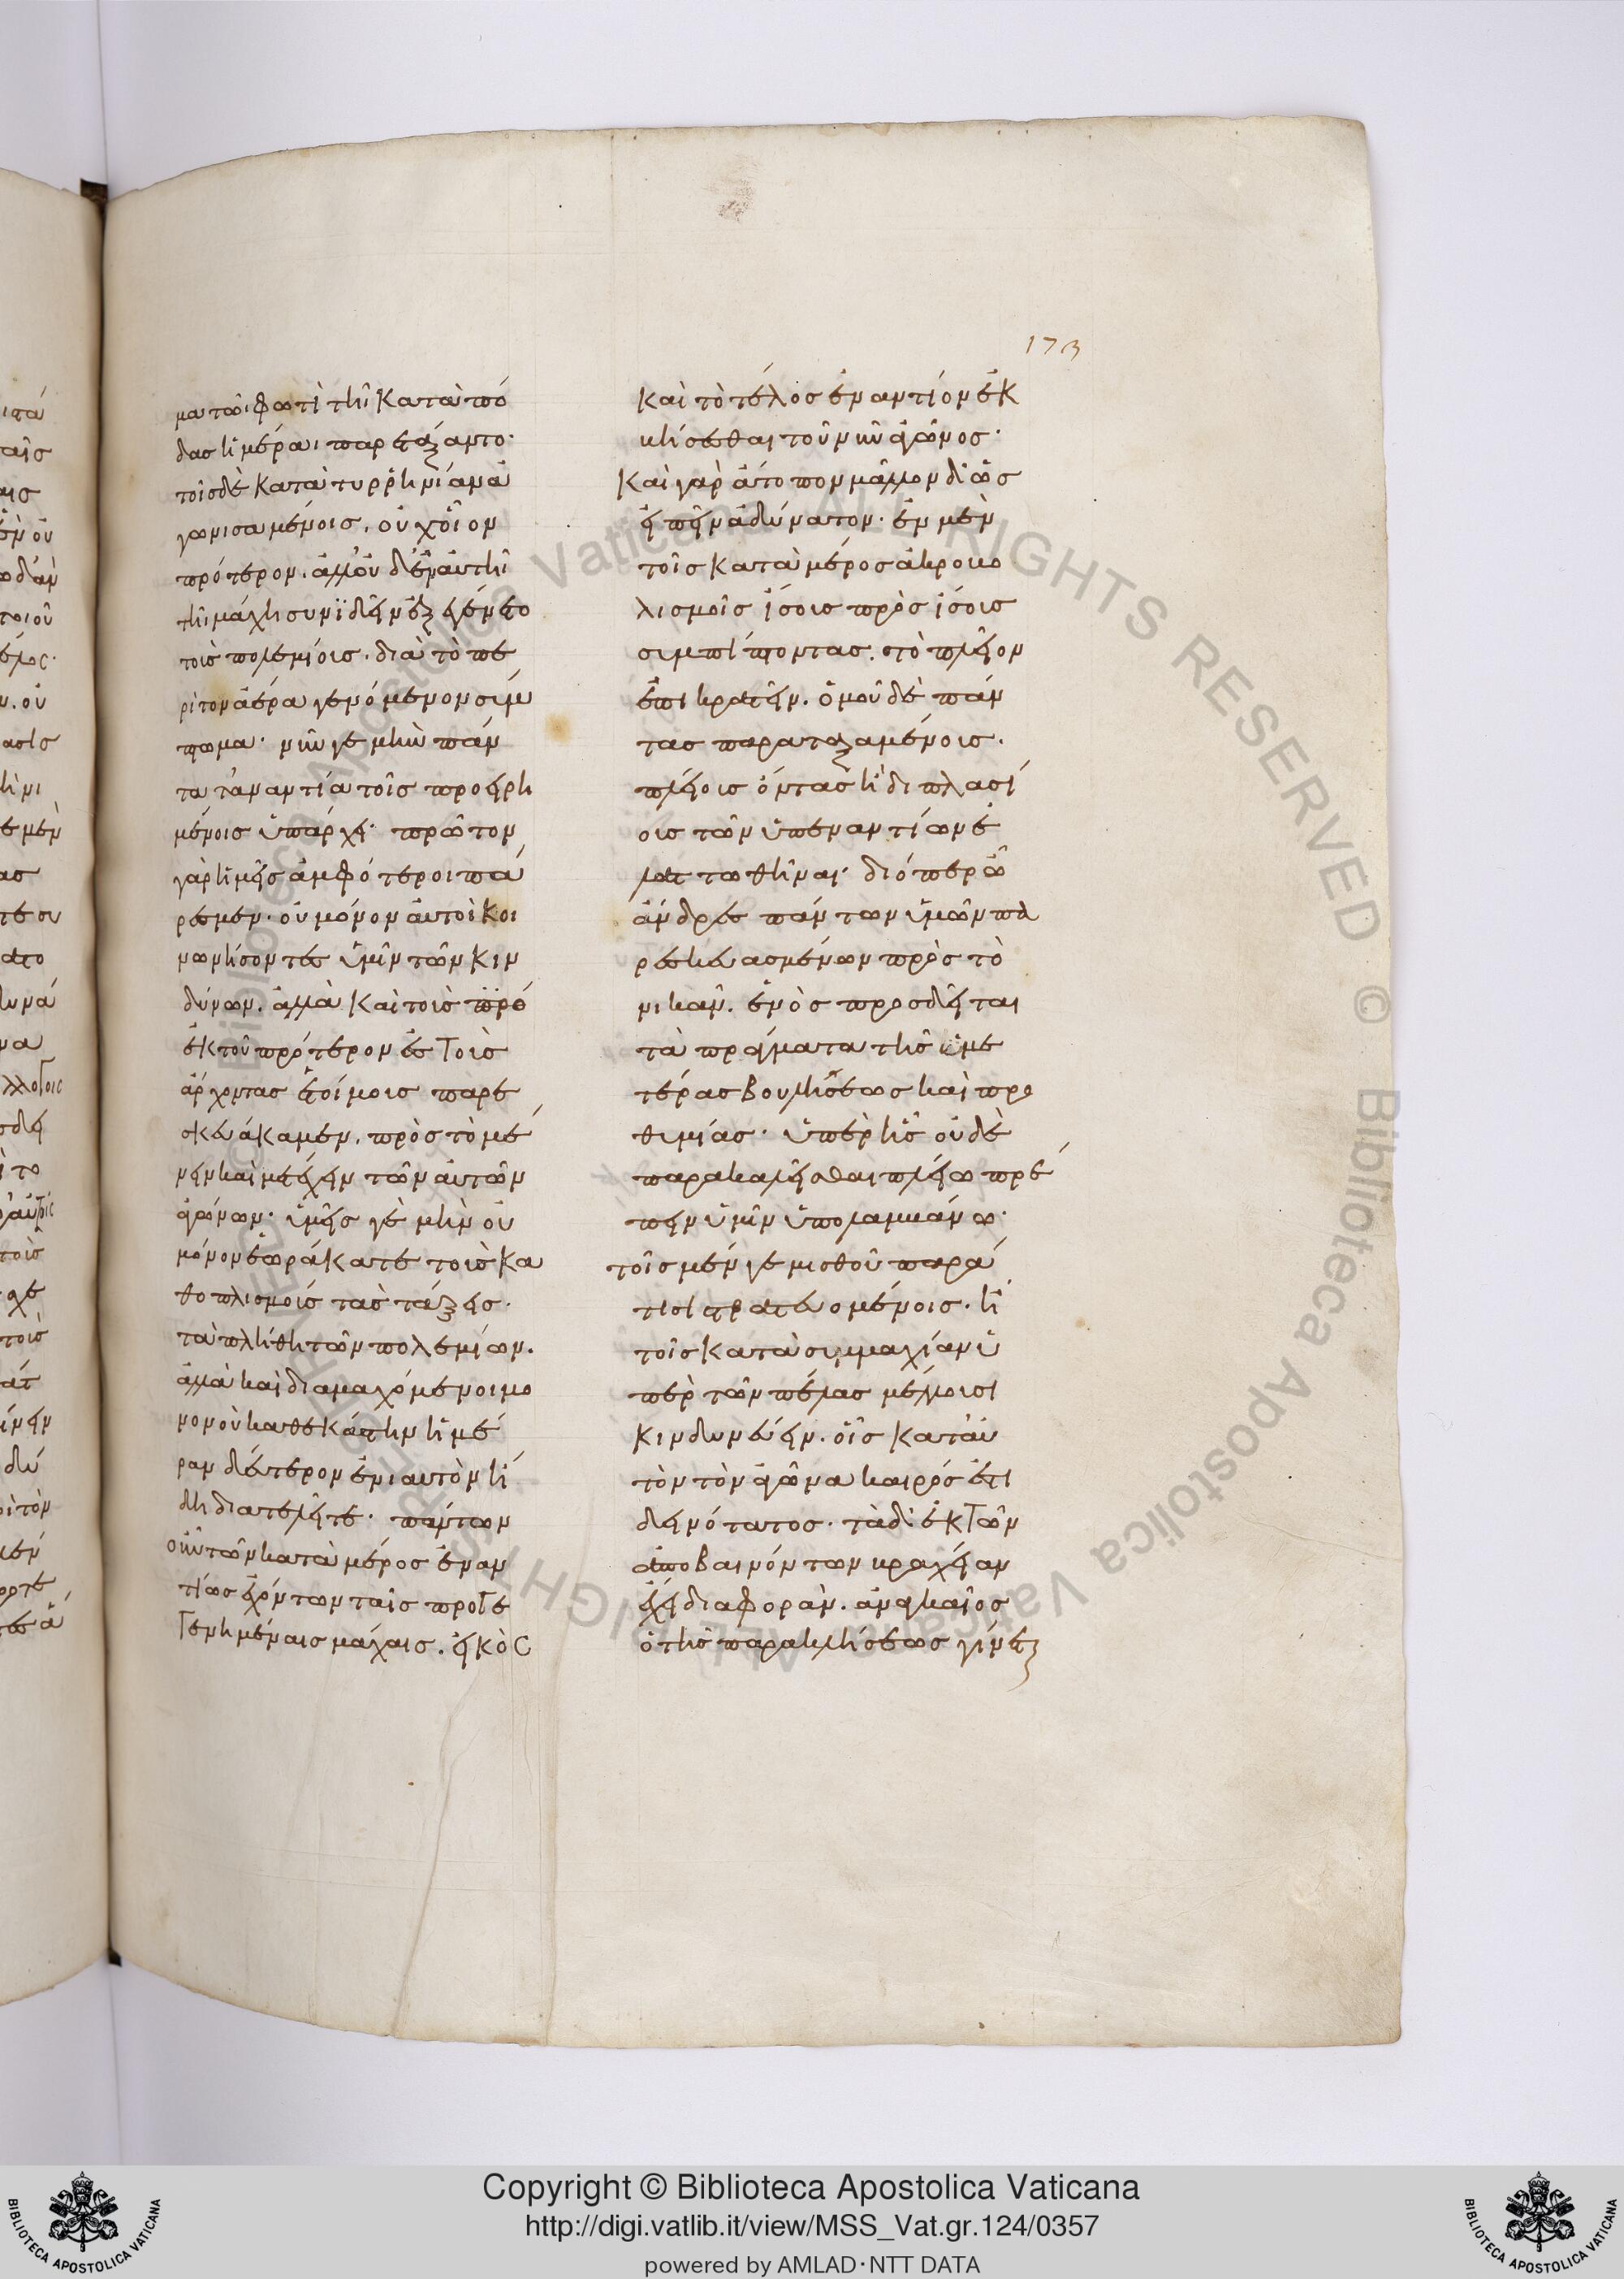 ματωι φωτὶ τῆι κατὰ πό
δας ἡμέραι παρετάξαντο·
τοῖς δὲ κατὰ τυρρηνίαν ἀ
γωνισαμένοις. οὐχ οἷον
πρότερον. ἀλλ' οὐδ' ἐν αὐτῆι
τῆι μάχηι συνϊδεῖν ἐξεγένετο
τοὺς πολεμίους. διὰ τὸ πε
ρὶ τὸν ἀέρα γενόμενον σύμ
πτωμα· νῦν γε μὴν πάν
τα τἀναντία τοῖς προειρη
μένοις ὑπάρχει· πρῶτον
γὰρ ἡμεῖς ἀμφότεροι πά
ρεσμεν· οὐ μόνον αὐτοὶ κοι
νωνήσοντες ὑμῖν τῶν κιν
δύνων. ἀλλὰ καὶ τοὺς πρό
ἐκ τοῦ πρότερον ἔτους
ἄρχοντας ἑτοίμους παρε
σκευάκαμεν. πρὸς τὸ μέ
νειν καὶ μετέχειν τῶν αὐτῶν
ἀγώνων· ὑμεῖς γε μὴν οὐ
μόνον ἑωράκατε τοὺς κα
θοπλισμοὺς τὰς τάξεις·
τὰ πλήθη τῶν πολεμίων.
ἀλλὰ καὶ διαμαχόμενοι μο
νον οὐ καθεκάστην ἡμέ
ραν δεύτερον ἐνιαυτὸν ἤ
δη διατελεῖτε· πάντων
οὖν τῶν κατὰ μέρος ἐναν
τίως ἐχόντων ταῖς προγε
γενημέναις μάχαις. εἰκὸς
173
καὶ τὸ τέλος ἐναντίον ἐκ
βήσεσθαι τοῦ νῦν ἀγῶνος·
καὶ γὰρ ἄτοπον μᾶλλον δ' ὡς
εἰπεῖν ἀδύνατον· ἐν μὲν
τοῖς κατὰ μέρος ἀκροβο
λισμοῖς ἴσους πρὸς ἴσους
συμπίπτοντας. τὸ πλεῖον
ἐπικρατεῖν. ὁμοῦ δὲ πάν
τας παραταξαμένους.
πλείους ὄντας ἢ διπλασί
ους τῶν ὑπεναντίων ἐ
λαττωθῆναι· διόπερ ὦ
ἄνδρες πάντων ὑμῶν πα
ρεσκευασμένων πρὸς τὸ
νικᾶν. ἑνὸς προσδεῖται
τὰ πράγματα τῆς ὑμε
τέρας βουλήσεως καὶ προ
θυμίας· ὑπὲρ ἧς οὐδὲ
παρακαλεῖσθαι πλείω πρέ
πειν ὑμῖν ὑπολαμβάνω·
τοῖς μέν γε μισθοῦ παρά
τισι στρατευομένοις. ἢ
τοῖς κατὰ συμμαχίαν ὑ
πὲρ τῶν πέλας μέλλουσι
κινδυνεύειν. οἷς κατ' αὐ
τὸν τὸν ἀγῶνα καιρός ἐστι
δεινότατος. τὰ δ' ἐκ τῶν
ἀποβαινόντων βραχεῖαν
ἔχει διαφοράν. ἀναγκαῖος
ὁ τῆς παρακλήσεως γίνεται
Copyright © Biblioteca Apostolica Vaticana
http://digi.vatlib.it/view/MSS_Vat.gr.124/0357
powered by AMLAD·NTT DATA
BIBLIOTECA APOSTOLICA VATICANA
BIBLIOTECA APOSTOLICA VATICANA